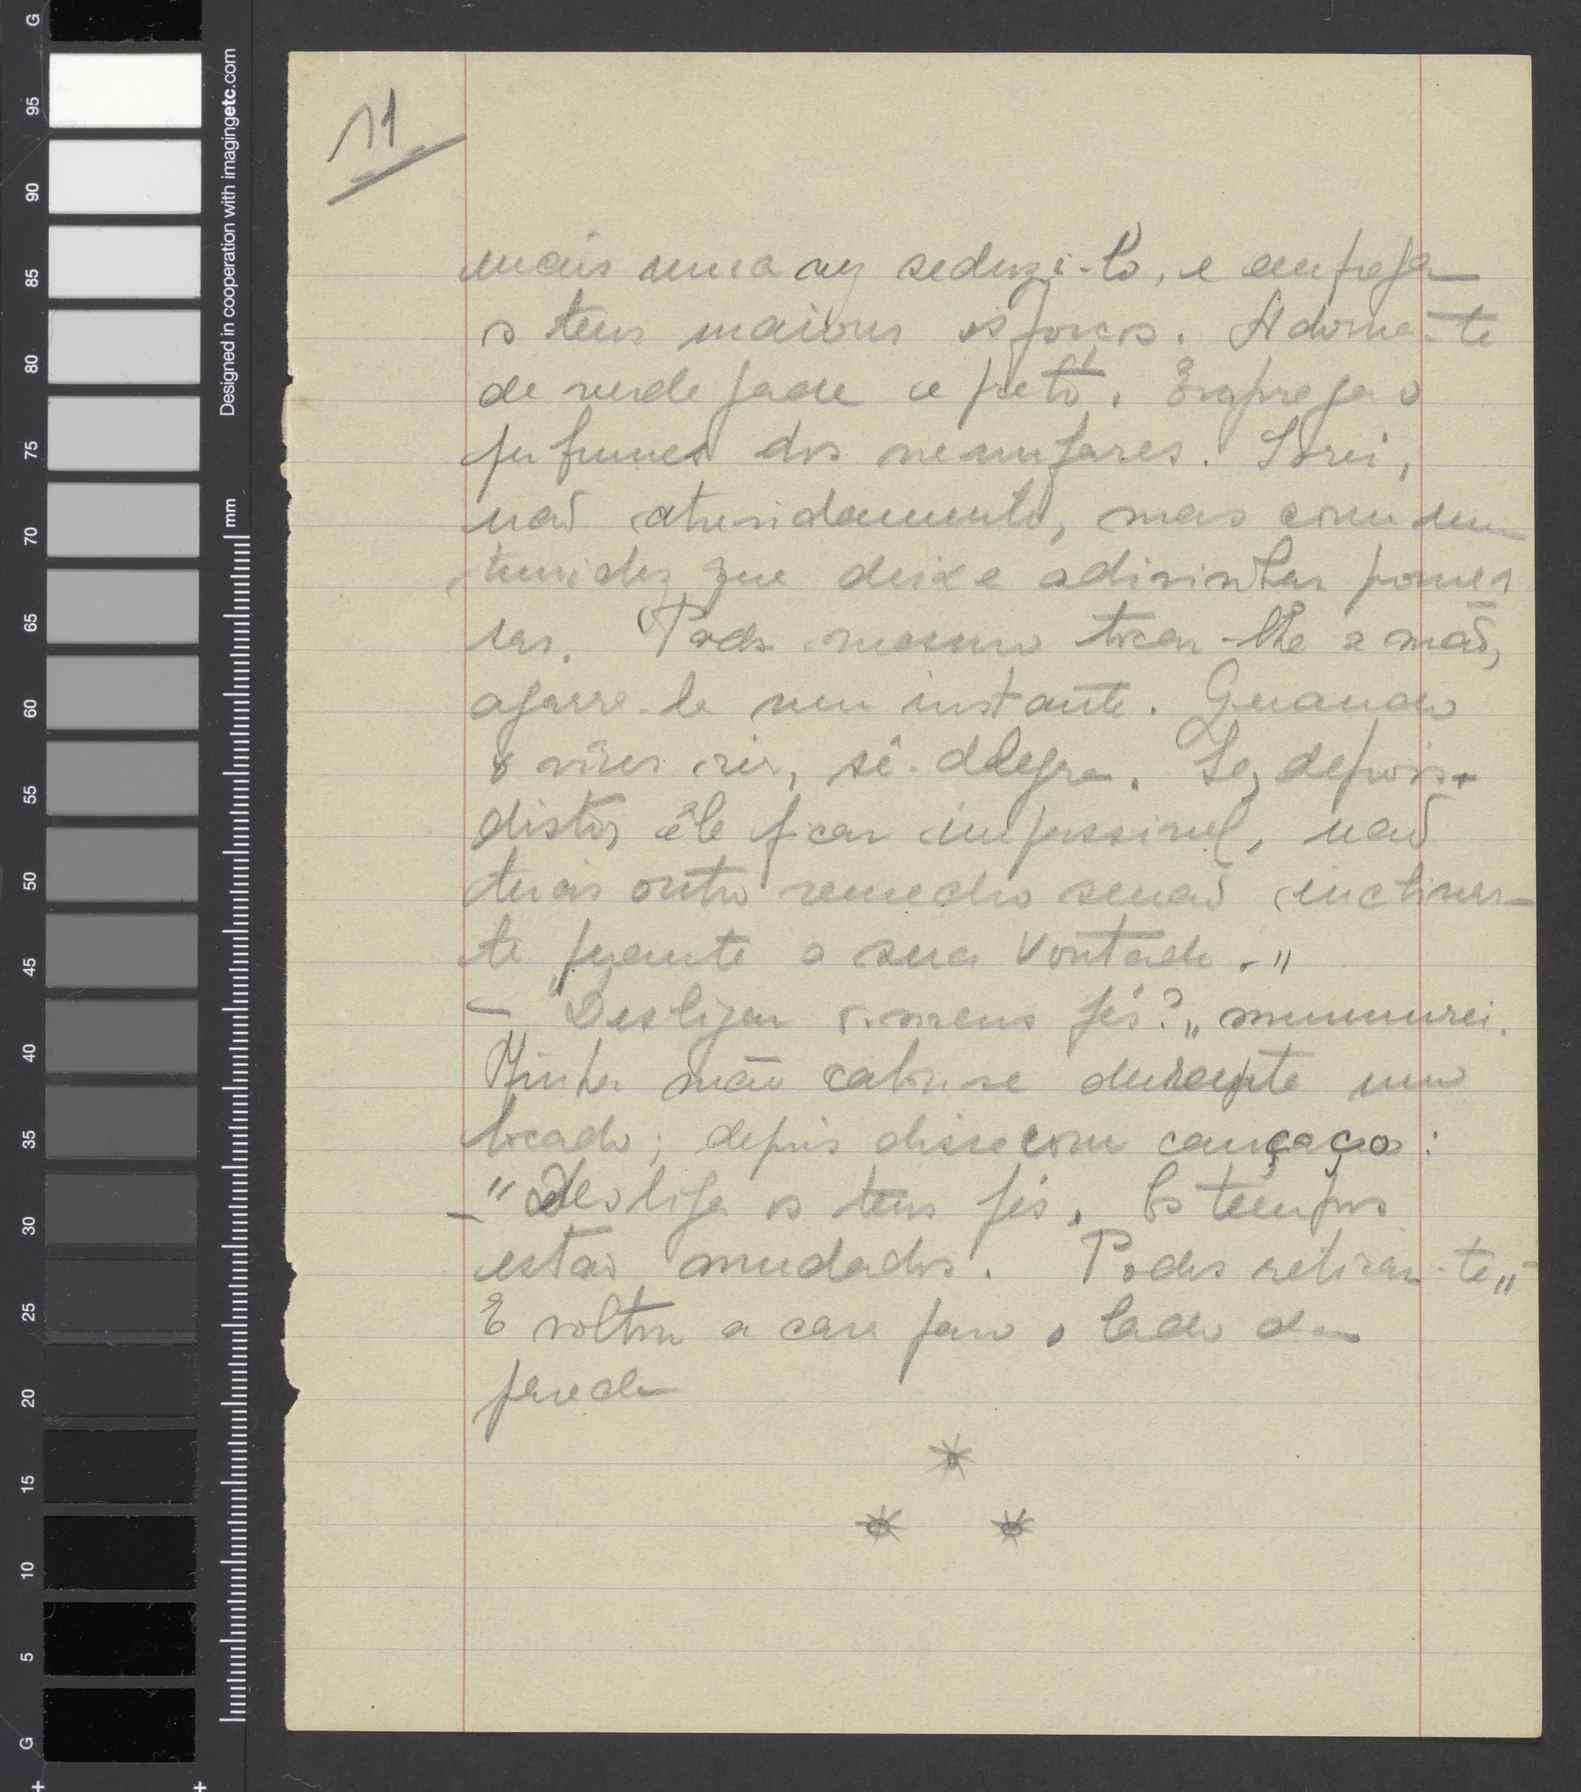 11
mais uma vez seduzi-lo, e emprega
os teus maiores esforços. Adorna-te
de verde jade e preto. Emprega o
perfumes dos nenufares. Sorri,
naõ atrevidamente, mas com um
timidez que deixe adivinhar promes
sas. Podes mesmo tocar-lhe a maõ,
agarre-la um instante. Quando
o vires rir, sê alegre. Se, depois
disto, êle ficar impassivel, naõ
terás outro remedio senaõ inclinar-
te perante a sua vontade."
- "Desligar os meus pés?" murmurei.
Minha mãe calou-se durante um
bocado; depois disse com cançaço:
- "Desliga os teus pés. Os tempos
estaõ mudados. Podes retirar-te"
E voltou a cara para o lado da
parede
* 
* *
G
95
90
85
80
75
70
65
60
55
50
45
40
35
30
25
20
15
10
5
G
Designed in cooperation with imagingetc.com
mm